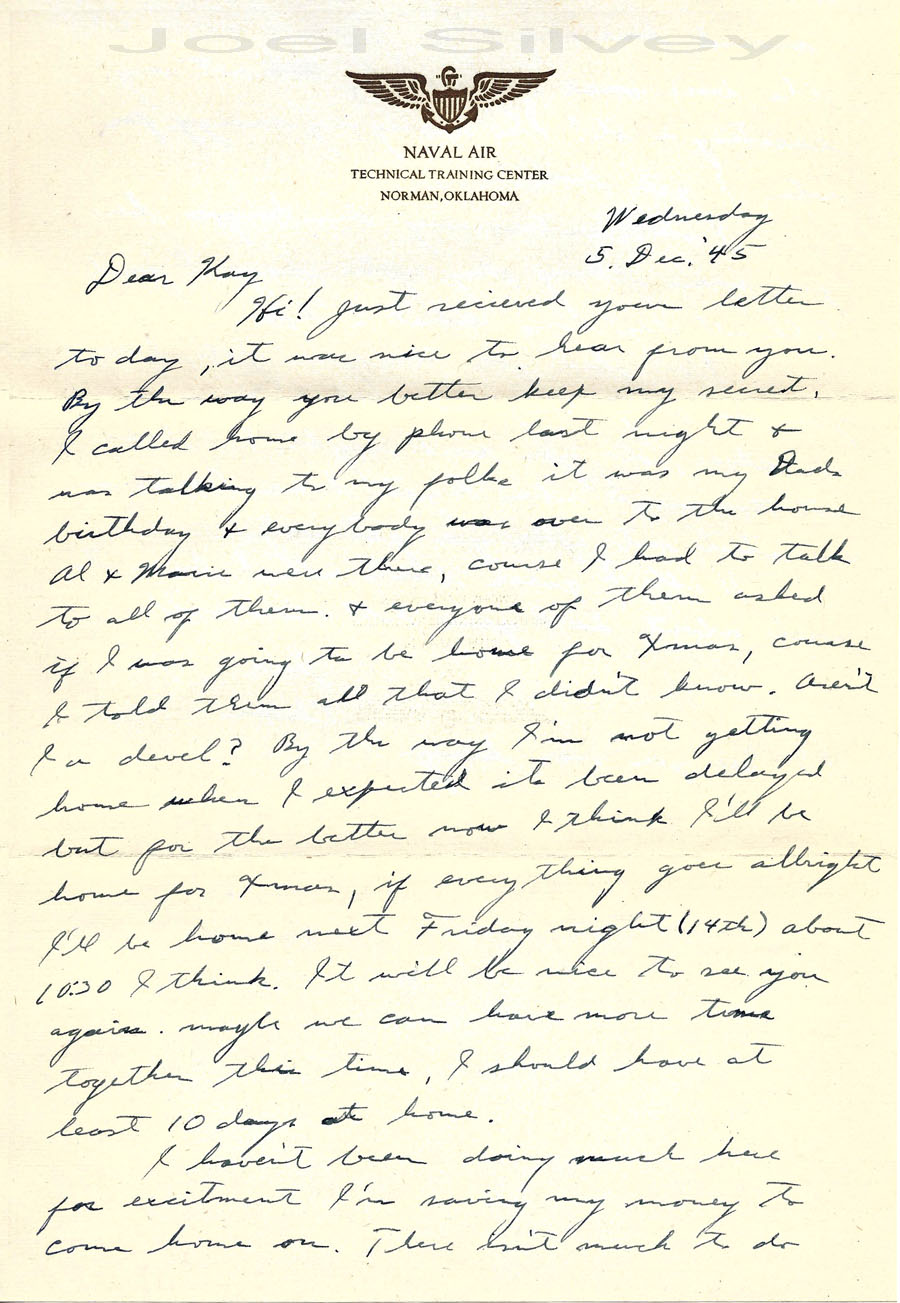 Joel Silvey
NAVAL AIR
TECHNICAL TRAINING CENTER
NORMAN, OKLAHOMA
Wednesday
5. Dec. '45
Dear Kay
Hi! Just recieved your letter
today, it was nice to hear from you.
By the way you better keep my secret.
I called home by phone last night &
was talking to my folks it was my Dads
birthday & everybody was over to the house
Al & Marie were there, course I had to talk
to all of them. & everyone of them asked
if I was going to be home for Xmas, course
I told them all that I didn't know. Aren't
I a devel? By the way I'm not getting
home when I expected its been delayed
but for the better now I think I'll be
home for Xmas, if everything goes allright
I'll be home next Friday night (14th) about
10:30 I think. It will be nice to see you
again. maybe we can have more time
together this time, I should have at
least 10 days at home.
I haven't been doing much here
for excitment I'm saving my money to
come home on. There isn't much to do